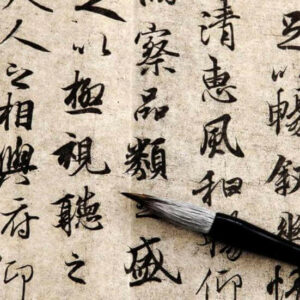 以暢叙幽情
清惠風和暢仰
察品類之盛
以極視聽之
人之相與俯仰